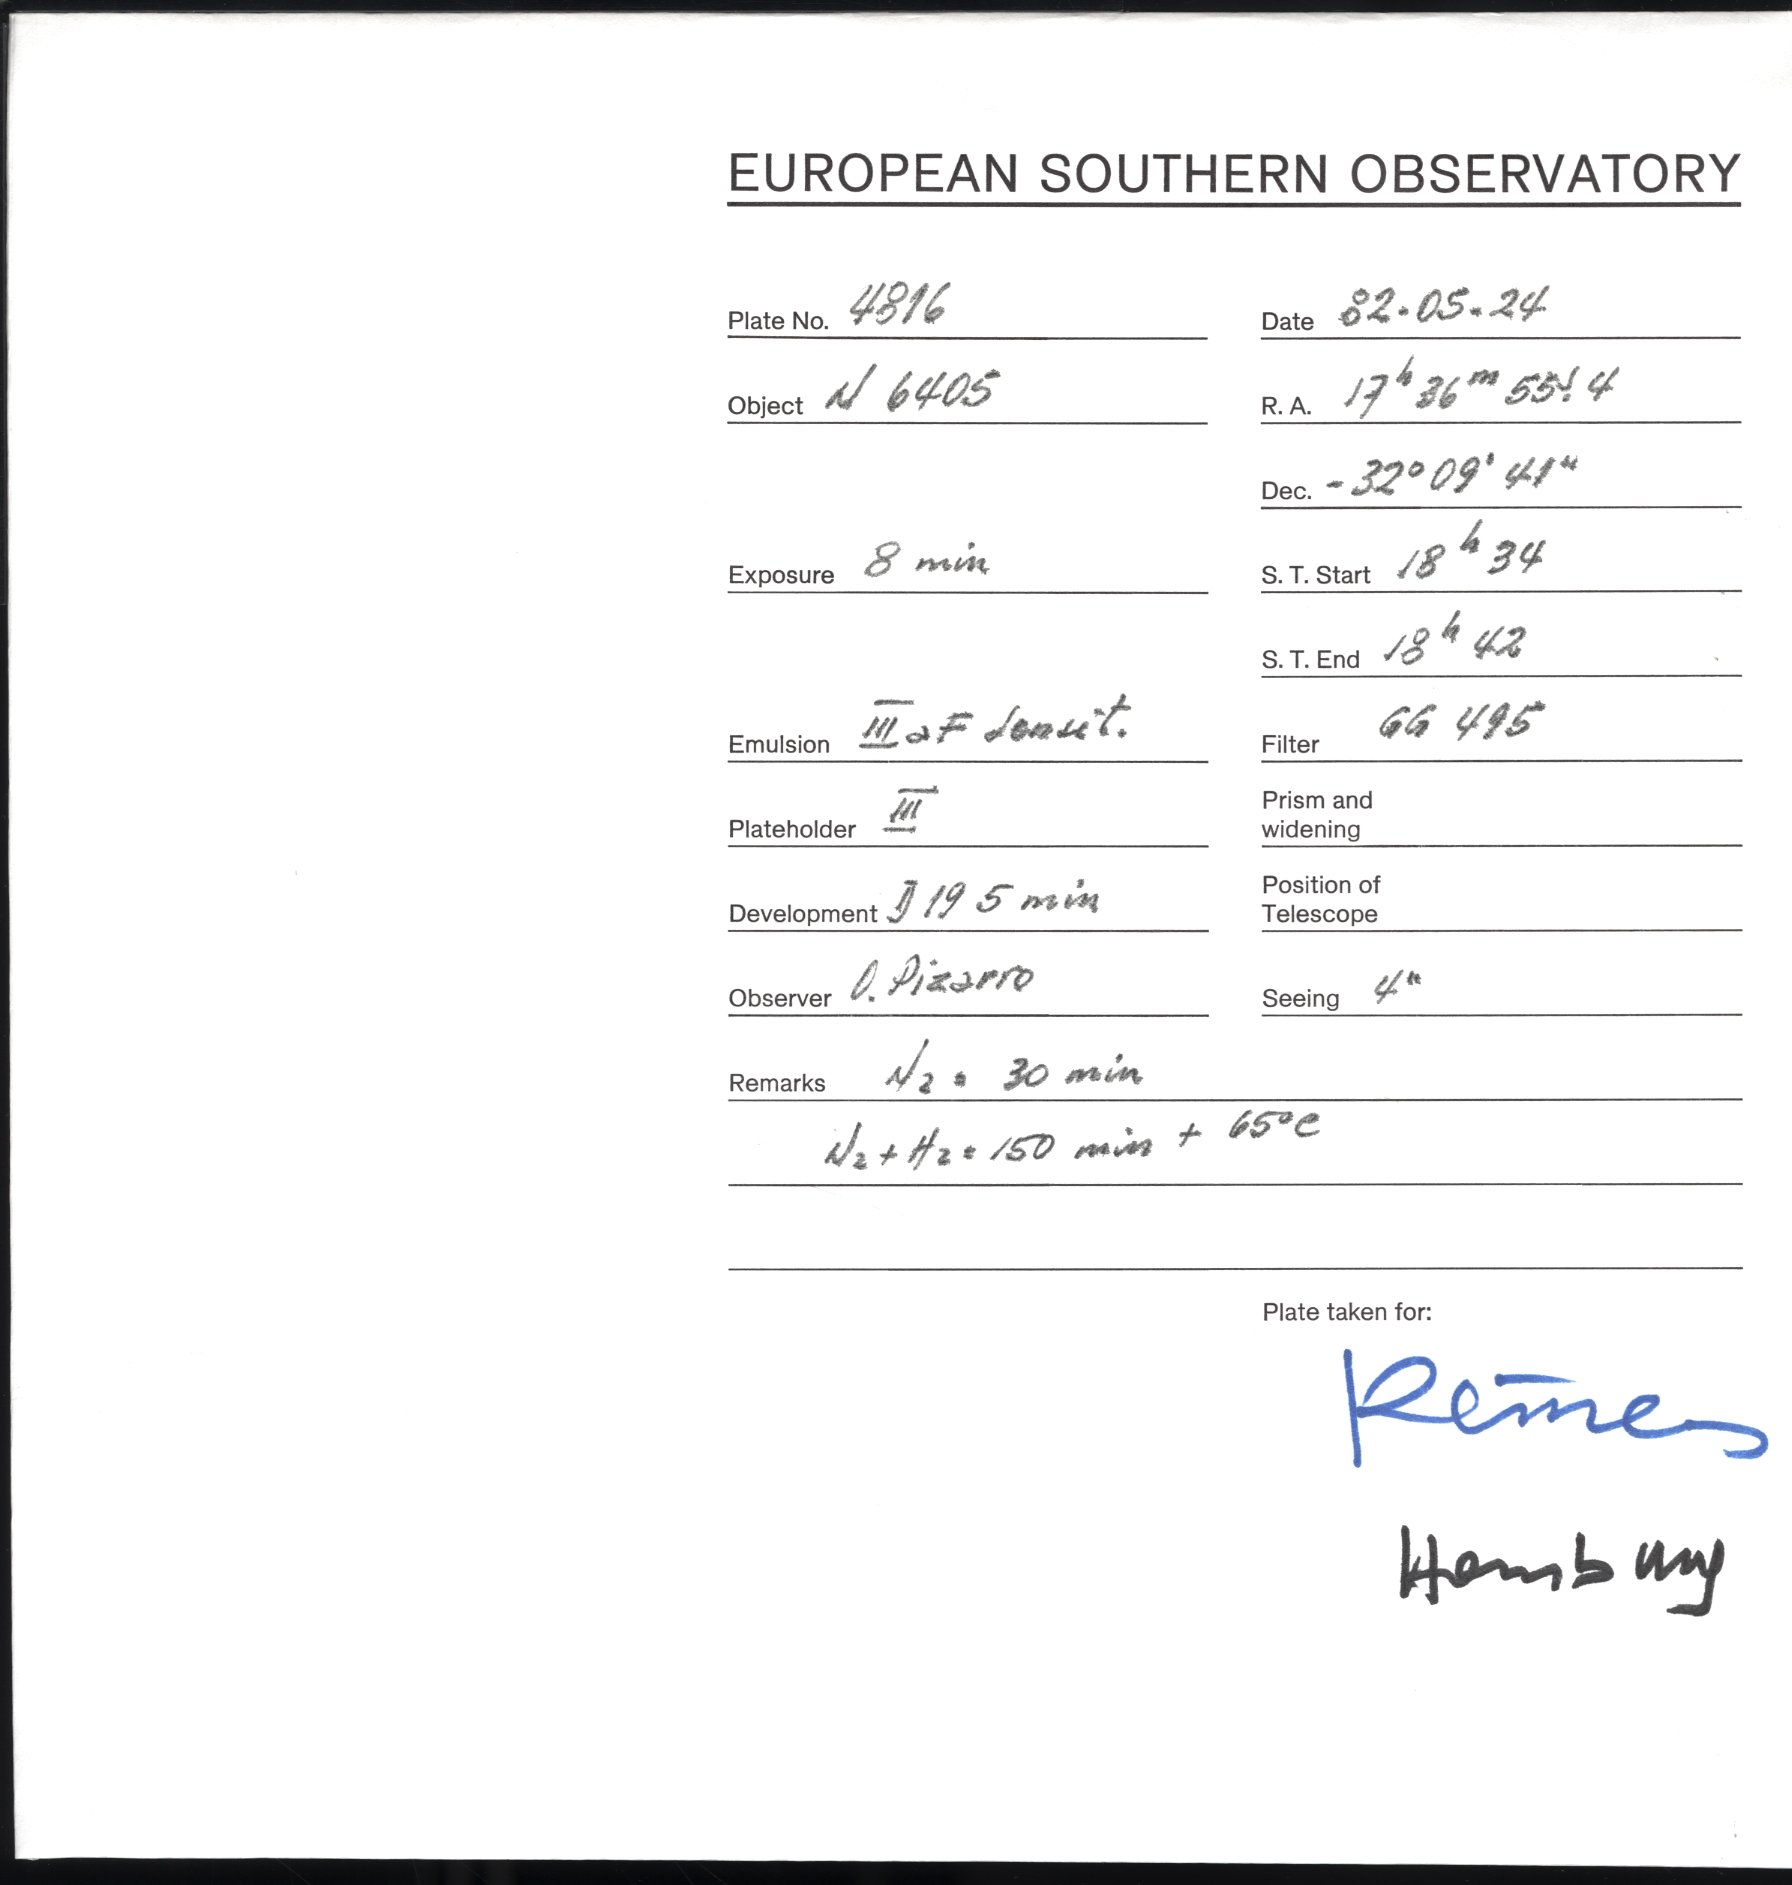 EUROPEAN SOUTHERN OBSERVATORY
Plate No. 4816
Date 82.05.24
Object N 6405
R. A. 17h 36m 55s.4
Dec. -32° 09' 41"
Exposure 8 min
S. T. Start 18h 34
S. T. End 18h 42
Emulsion III aF sensit.
Filter GG 495
Plateholder III
Prism and
widening
Development D 19 5 min
Position of
Telescope
Observer O. Pizarro
Seeing 4"
Remarks N2 = 30 min
N2 + H2 = 150 min + 65°C
Plate taken for:
Hamburg